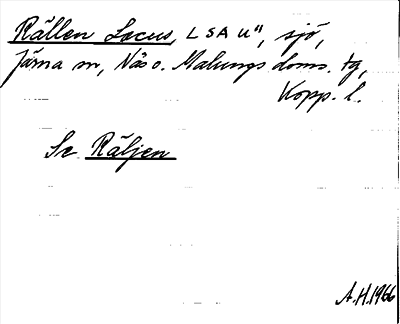 Rällen Lacus, LSA U", sjö,
Järna sn, Nås o. Malungs doms. tg,
Kopp. l.
Se Räljen
A.H.1966